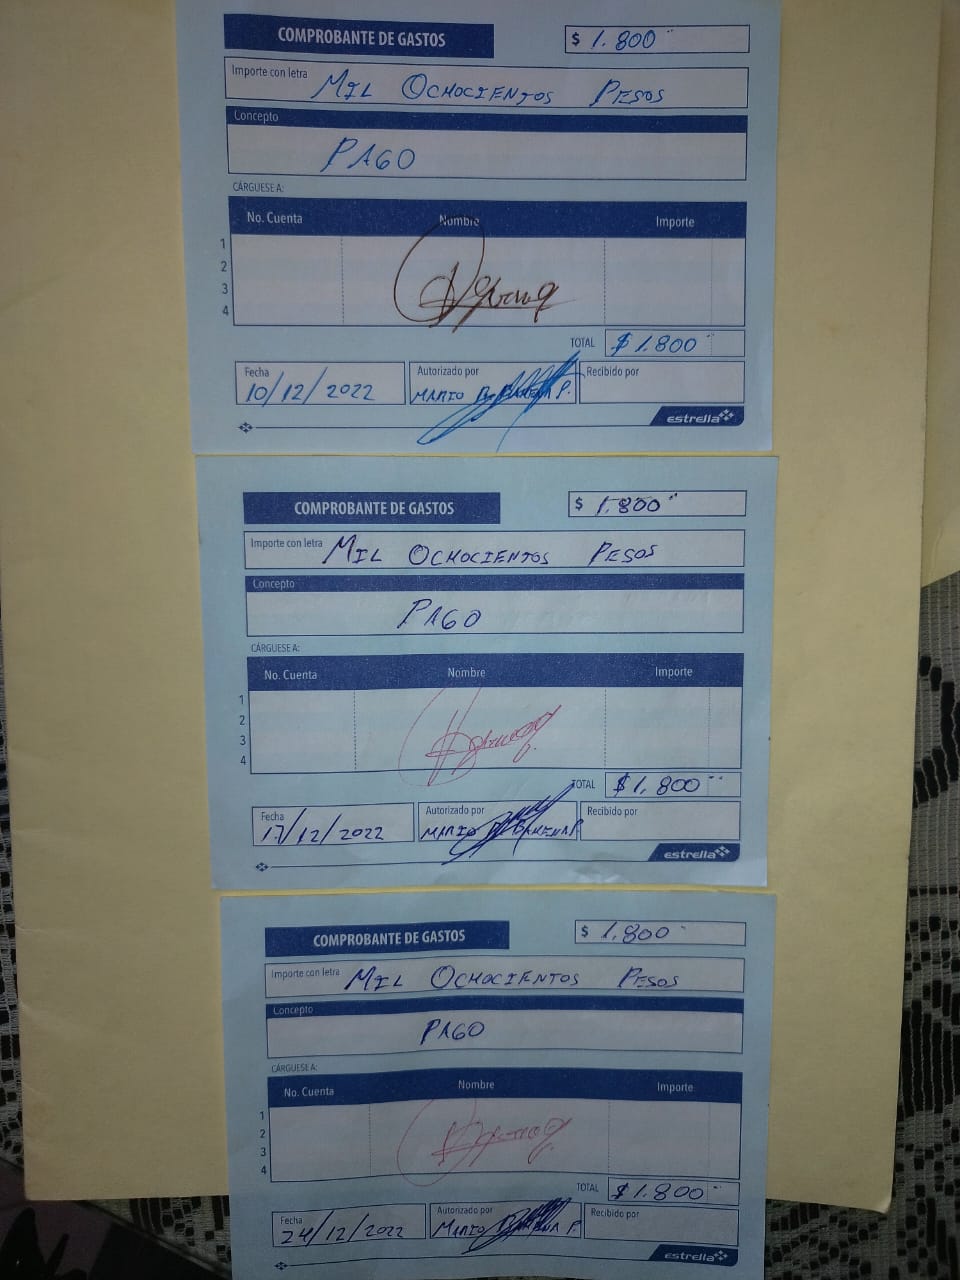 COMPROBANTE DE GASTOS
$ 1.800
Importe con letra MIL OCHOCIENTOS PESOS
Concepto
PAGO
CÁRGUESE A:
No. Cuenta Nombre Importe
1
2
3
4
TOTAL $ 1.800
Fecha Autorizado por Recibido por
10/12/2022 MARIO
estrella
COMPROBANTE DE GASTOS
$ 1.800
Importe con letra MIL OCHOCIENTOS PESOS
Concepto
PAGO
CÁRGUESE A:
No. Cuenta Nombre Importe
1
2
3
4
TOTAL $ 1.800
Fecha Autorizado por Recibido por
17/12/2022 MARIO
estrella
COMPROBANTE DE GASTOS
$ 1.800
Importe con letra MIL OCHOCIENTOS PESOS
Concepto
PAGO
CÁRGUESE A:
No. Cuenta Nombre Importe
1
2
3
4
TOTAL $ 1.800
Fecha Autorizado por Recibido por
24/12/2022 MARIO
estrella